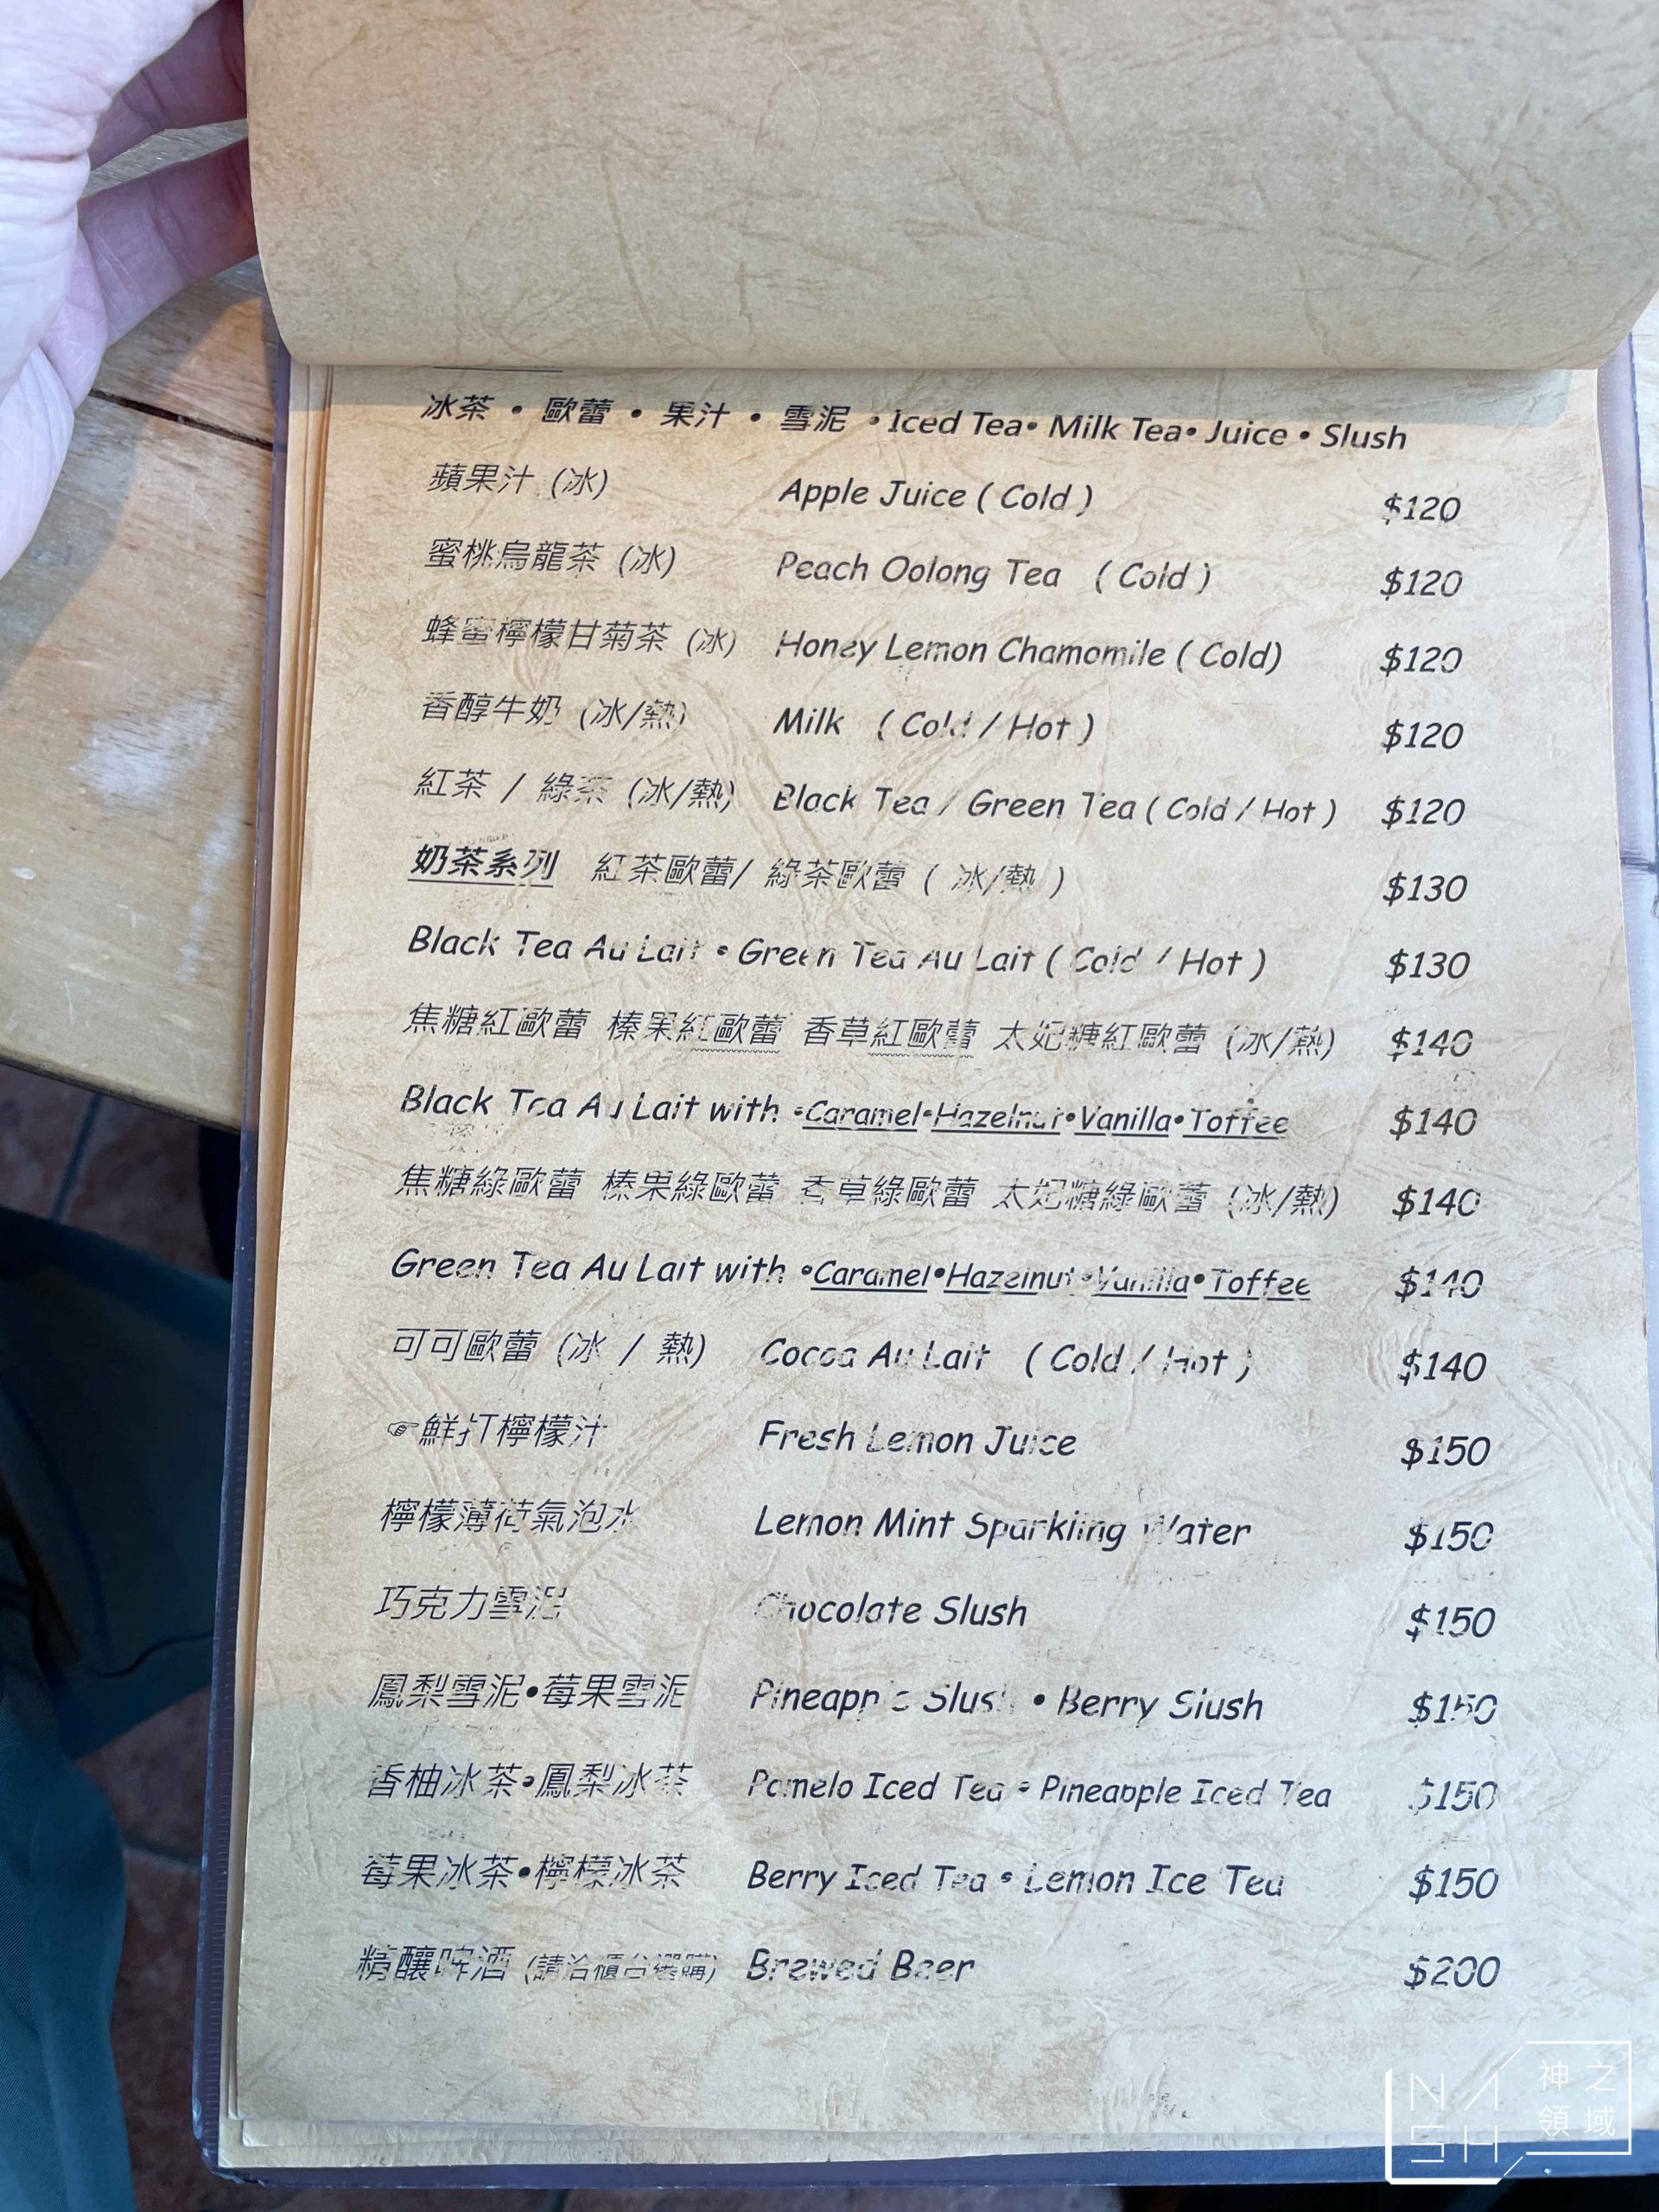 冰茶 • 歐蕾 • 果汁 • 雪泥 • Iced Tea• Milk Tea• Juice • Slush
蘋果汁 (冰) Apple Juice ( Cold ) $120
蜜桃烏龍茶 (冰) Peach Oolong Tea ( Cold ) $120
蜂蜜檸檬甘菊茶 (冰) Honey Lemon Chamomile ( Cold) $120
香醇牛奶 (冰/熱) Milk ( Cold / Hot ) $120
紅茶 / 綠茶 (冰/熱) Black Tea / Green Tea ( Cold / Hot ) $120
奶茶系列 紅茶歐蕾/ 綠茶歐蕾 ( 冰/熱 ) $130
Black Tea Au Lait • Green Tea Au Lait ( Cold / Hot ) $130
焦糖紅歐蕾 榛果紅歐蕾 香草紅歐蕾 太妃糖紅歐蕾 (冰/熱) $140
Black Tea Au Lait with •Caramel•Hazelnut•Vanilla•Toffee $140
焦糖綠歐蕾 榛果綠歐蕾 香草綠歐蕾 太妃糖綠歐蕾 (冰/熱) $140
Green Tea Au Lait with •Caramel•Hazelnut•Vanilla•Toffee $140
可可歐蕾 (冰 / 熱) Cocoa Au Lait ( Cold / Hot ) $140
☞鮮打檸檬汁 Fresh Lemon Juice $150
檸檬薄荷氣泡水 Lemon Mint Sparkling Water $150
巧克力雪泥 Chocolate Slush $150
鳳梨雪泥•莓果雪泥 Pineapple Slush • Berry Slush $150
香柚冰茶•鳳梨冰茶 Pomelo Iced Tea • Pineapple Iced Tea $150
莓果冰茶•檸檬冰茶 Berry Iced Tea • Lemon Ice Tea $150
精釀啤酒 (請洽櫃台選購) Brewed Beer $200
NASH 神之領域